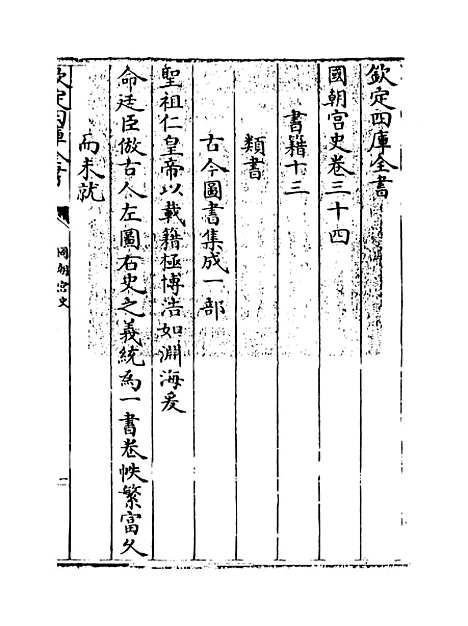 欽定四庫全書
國朝宫史卷三十四
書籍十三
類書
古今圖書集成一部
聖祖仁皇帝以載籍極博浩如淵海爰
命廷臣倣古人左圖右史之義統為一書卷帙繁富久
而未就
欽定四庫全書
國朝宫史
一